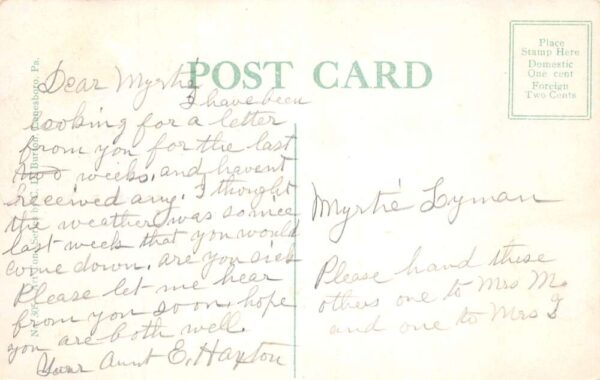 POST CARD
Place
Stamp Here
Domestic
One cent
Foreign
Two Cents
Dear Myrtie
I have been
looking for a letter
from you for the last
two weeks, and havent
received any. I thought
the weather was so nice
last week that you would
come down. are you sick
Please let me hear
from you soon, hope
you are both well.
Your Aunt E. Haxton
Myrtie Lyman
Please hand these
others one to Mrs M.
and one to Mrs
Burton, Lanesboro, Pa.